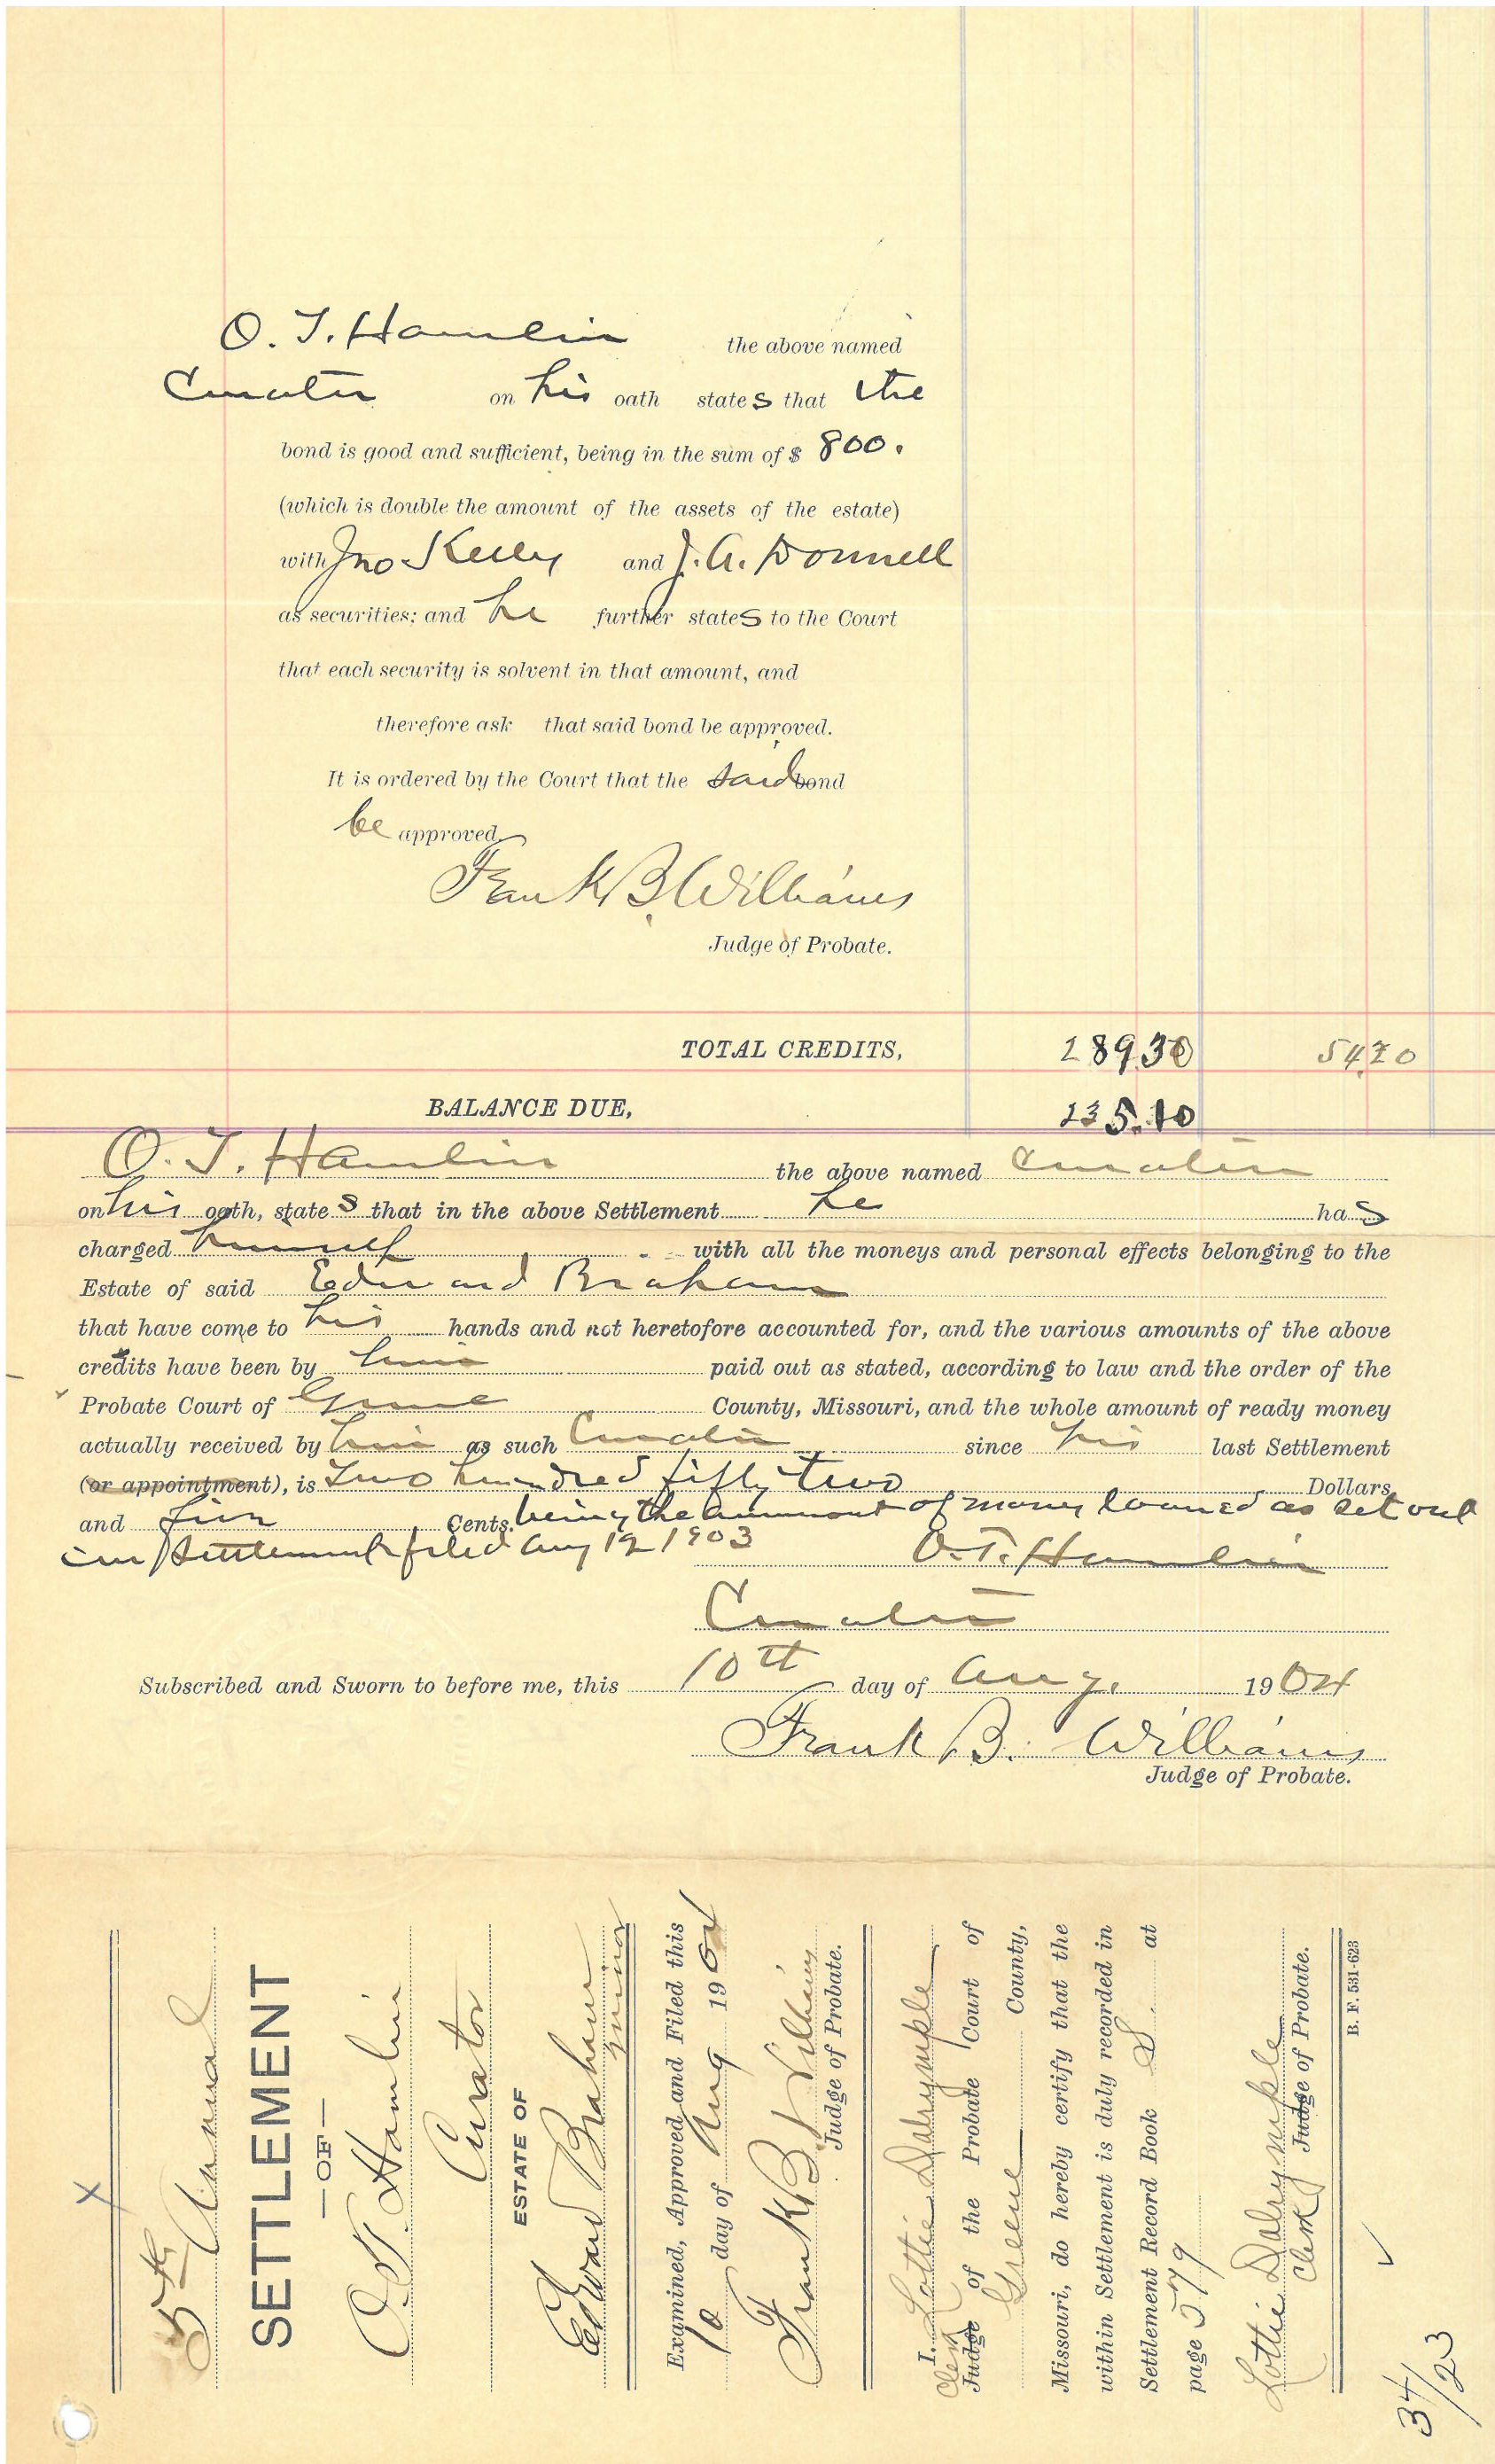 O. T. Hamlin the above named
Curator on his oath states that the
bond is good and sufficient, being in the sum of $ 800.
(which is double the amount of the assets of the estate)
with Jno Kelly and J. A. Donnell
as securities; and he further states to the Court
that each security is solvent in that amount, and
therefore ask that said bond be approved.
It is ordered by the Court that the said bond
be approved
Frank B. Williams
Judge of Probate.
TOTAL CREDITS, 289.30 54.20
BALANCE DUE, 235.10
O. T. Hamlin the above named Curator
on his oath, states that in the above Settlement he has
charged himself with all the moneys and personal effects belonging to the
Estate of said Edward Braham
that have come to his hands and not heretofore accounted for, and the various amounts of the above
credits have been by him paid out as stated, according to law and the order of the
Probate Court of Greene County, Missouri, and the whole amount of ready money
actually received by him as such Curator since his last Settlement
(or appointment), is Two hundred fifty two Dollars
and five Cents. being the ammount of money loaned as set out
in settlement filed Aug 12 1903 O. T. Hamlin
Curator
Subscribed and Sworn to before me, this 10th day of Aug. 1904
Frank B. Williams
Judge of Probate.
X
5th Annual
SETTLEMENT
—OF—
O. T. Hamlin
Curator
ESTATE OF
Edward Braham
minor
Examined, Approved and Filed this
10 day of Aug 1904
Frank B Williams
Judge of Probate.
I, Lottie Dalrymple
Clerk Judge of the Probate Court of
Greene County,
Missouri, do hereby certify that the
within Settlement is duly recorded in
Settlement Record Book S. at
page 579
Lottie Dalrymple
Clerk Judge of Probate.
B. F. 531-623
34/23